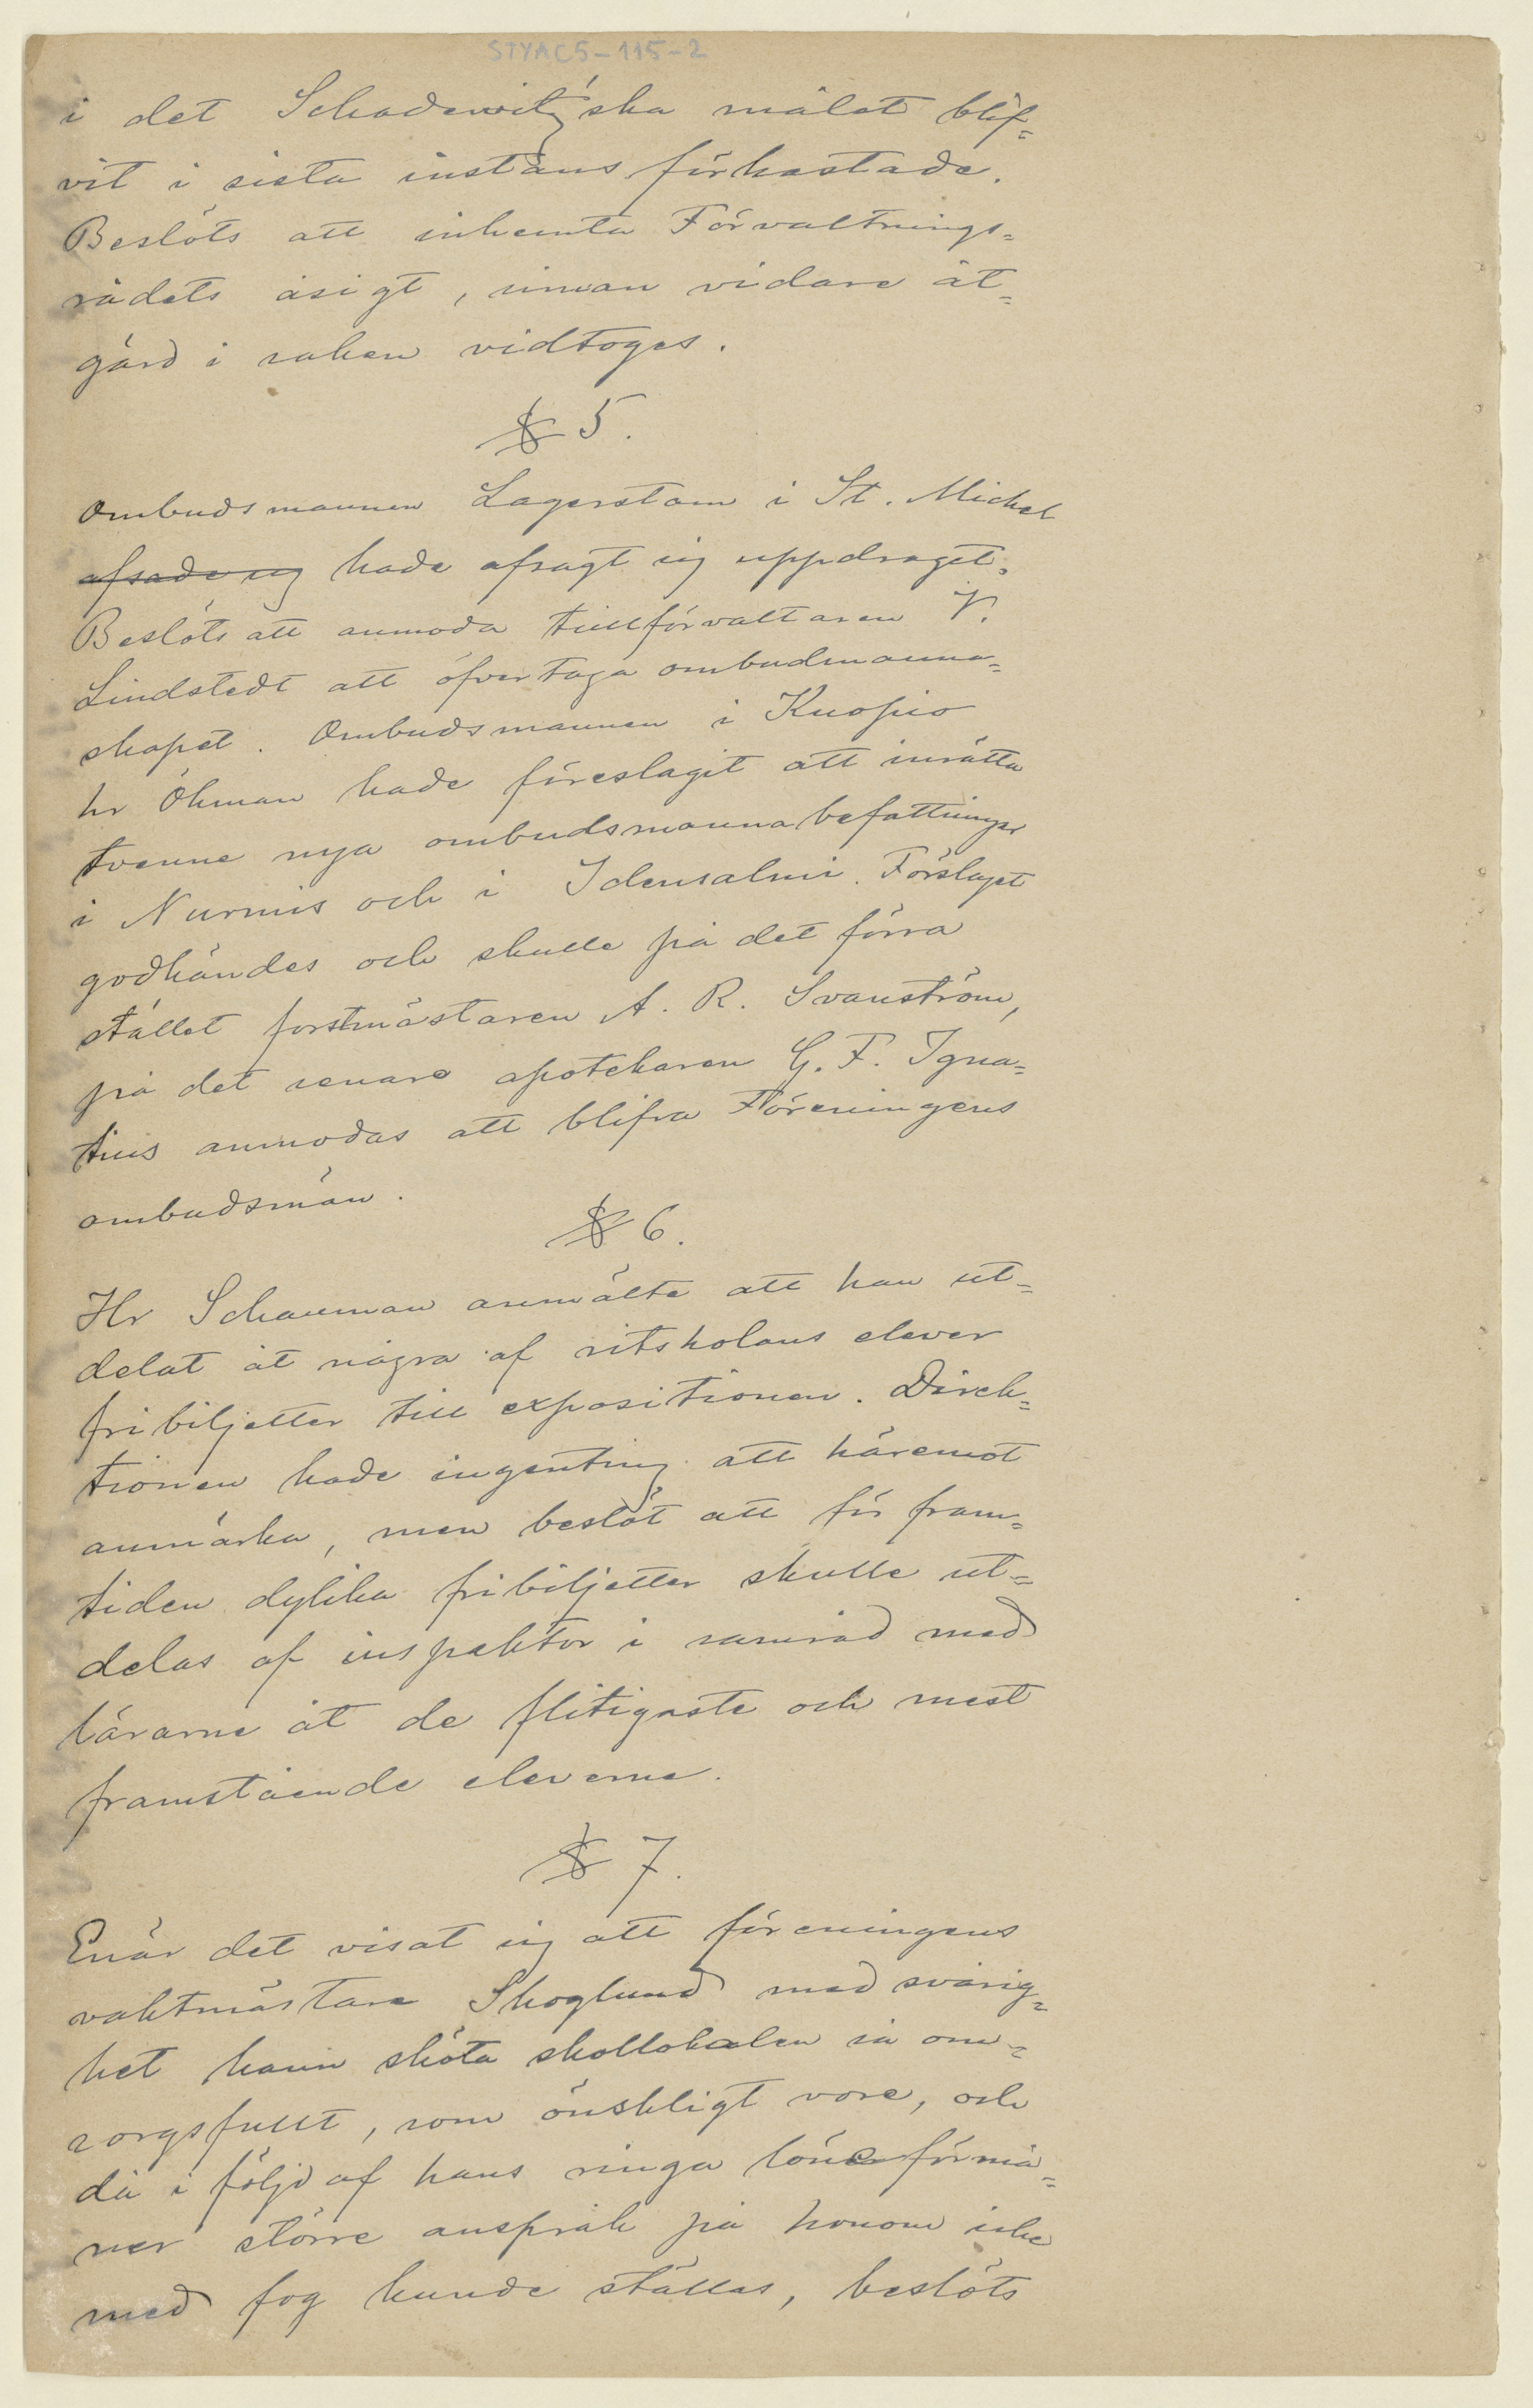 STYAC5-115-2
i det Schadewitz'ska målet blif=
vit i sista instans förkastade.
Beslöts att inhemta Förvaltnings=
rådets åsigt, innan vidare åt=
gärd i saken vidtoges.
§ 5.
Ombudsmannen Lagerstam i St. Michel
afsade sig hade afsagt sig uppdraget.
Beslöts att anmoda tullförvaltaren V.
Lindstedt att öfvertaga ombudmanna=
skapet. Ombudsmannen i Kuopio
hr Öhman hade föreslagit att inrätta
tvenne nya ombudsmannabefattningar
i Nurmis och i Idensalmi. Förslaget
godkändes och skulle på det förra
stället forstmästaren A. R. Svanström,
på det senare apotekaren G. F. Igna=
tius anmodas att blifva Föreningens
ombudsmän.
§ 6.
Hr Schauman anmälte att han ut=
delat åt några af ritskolans elever
fribiljetter till expositionen. Direk=
tionen hade ingenting att häremot
anmärka, men beslöt att för fram=
tiden dylika fribiljetter skulle ut=
delas af inspektor i samråd med
lärarne åt de flitigaste och mest
framstående eleverne.
§ 7.
Enär det visat sig att föreningens
vaktmästare Skoglund med svårig=
het hann sköta skollokalen så om=
sorgsfullt, som önskligt vore, och
då i följd af hans ringa löneförmå=
ner större anspråk på honom icke
med fog kunde ställas, beslöts